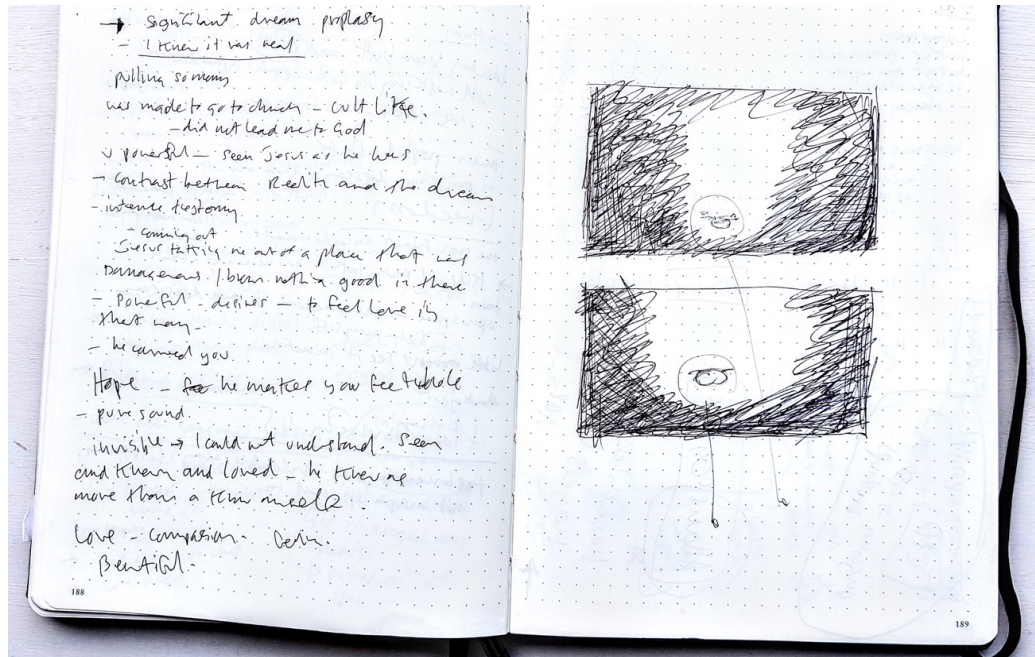 → significant dream prophasy
- I knew it was real
pulling so many
was made to go to church - cult like.
- did not lead me to God
v powerful - seen Jesus as he was
- contrast between Reality and the dream
- intense testomy
- coming out
Jesus taking me out of a place that was
nothing good in there
- Powerful - desires - to feel love in
that way.
- he carried you.
Hope - he makes you feel whole
- pure sound.
invisible → I could not understand. Seen
and known and loved - he knew me
more than I knew myself.
Love - compasion.
Beautiful.
188
189